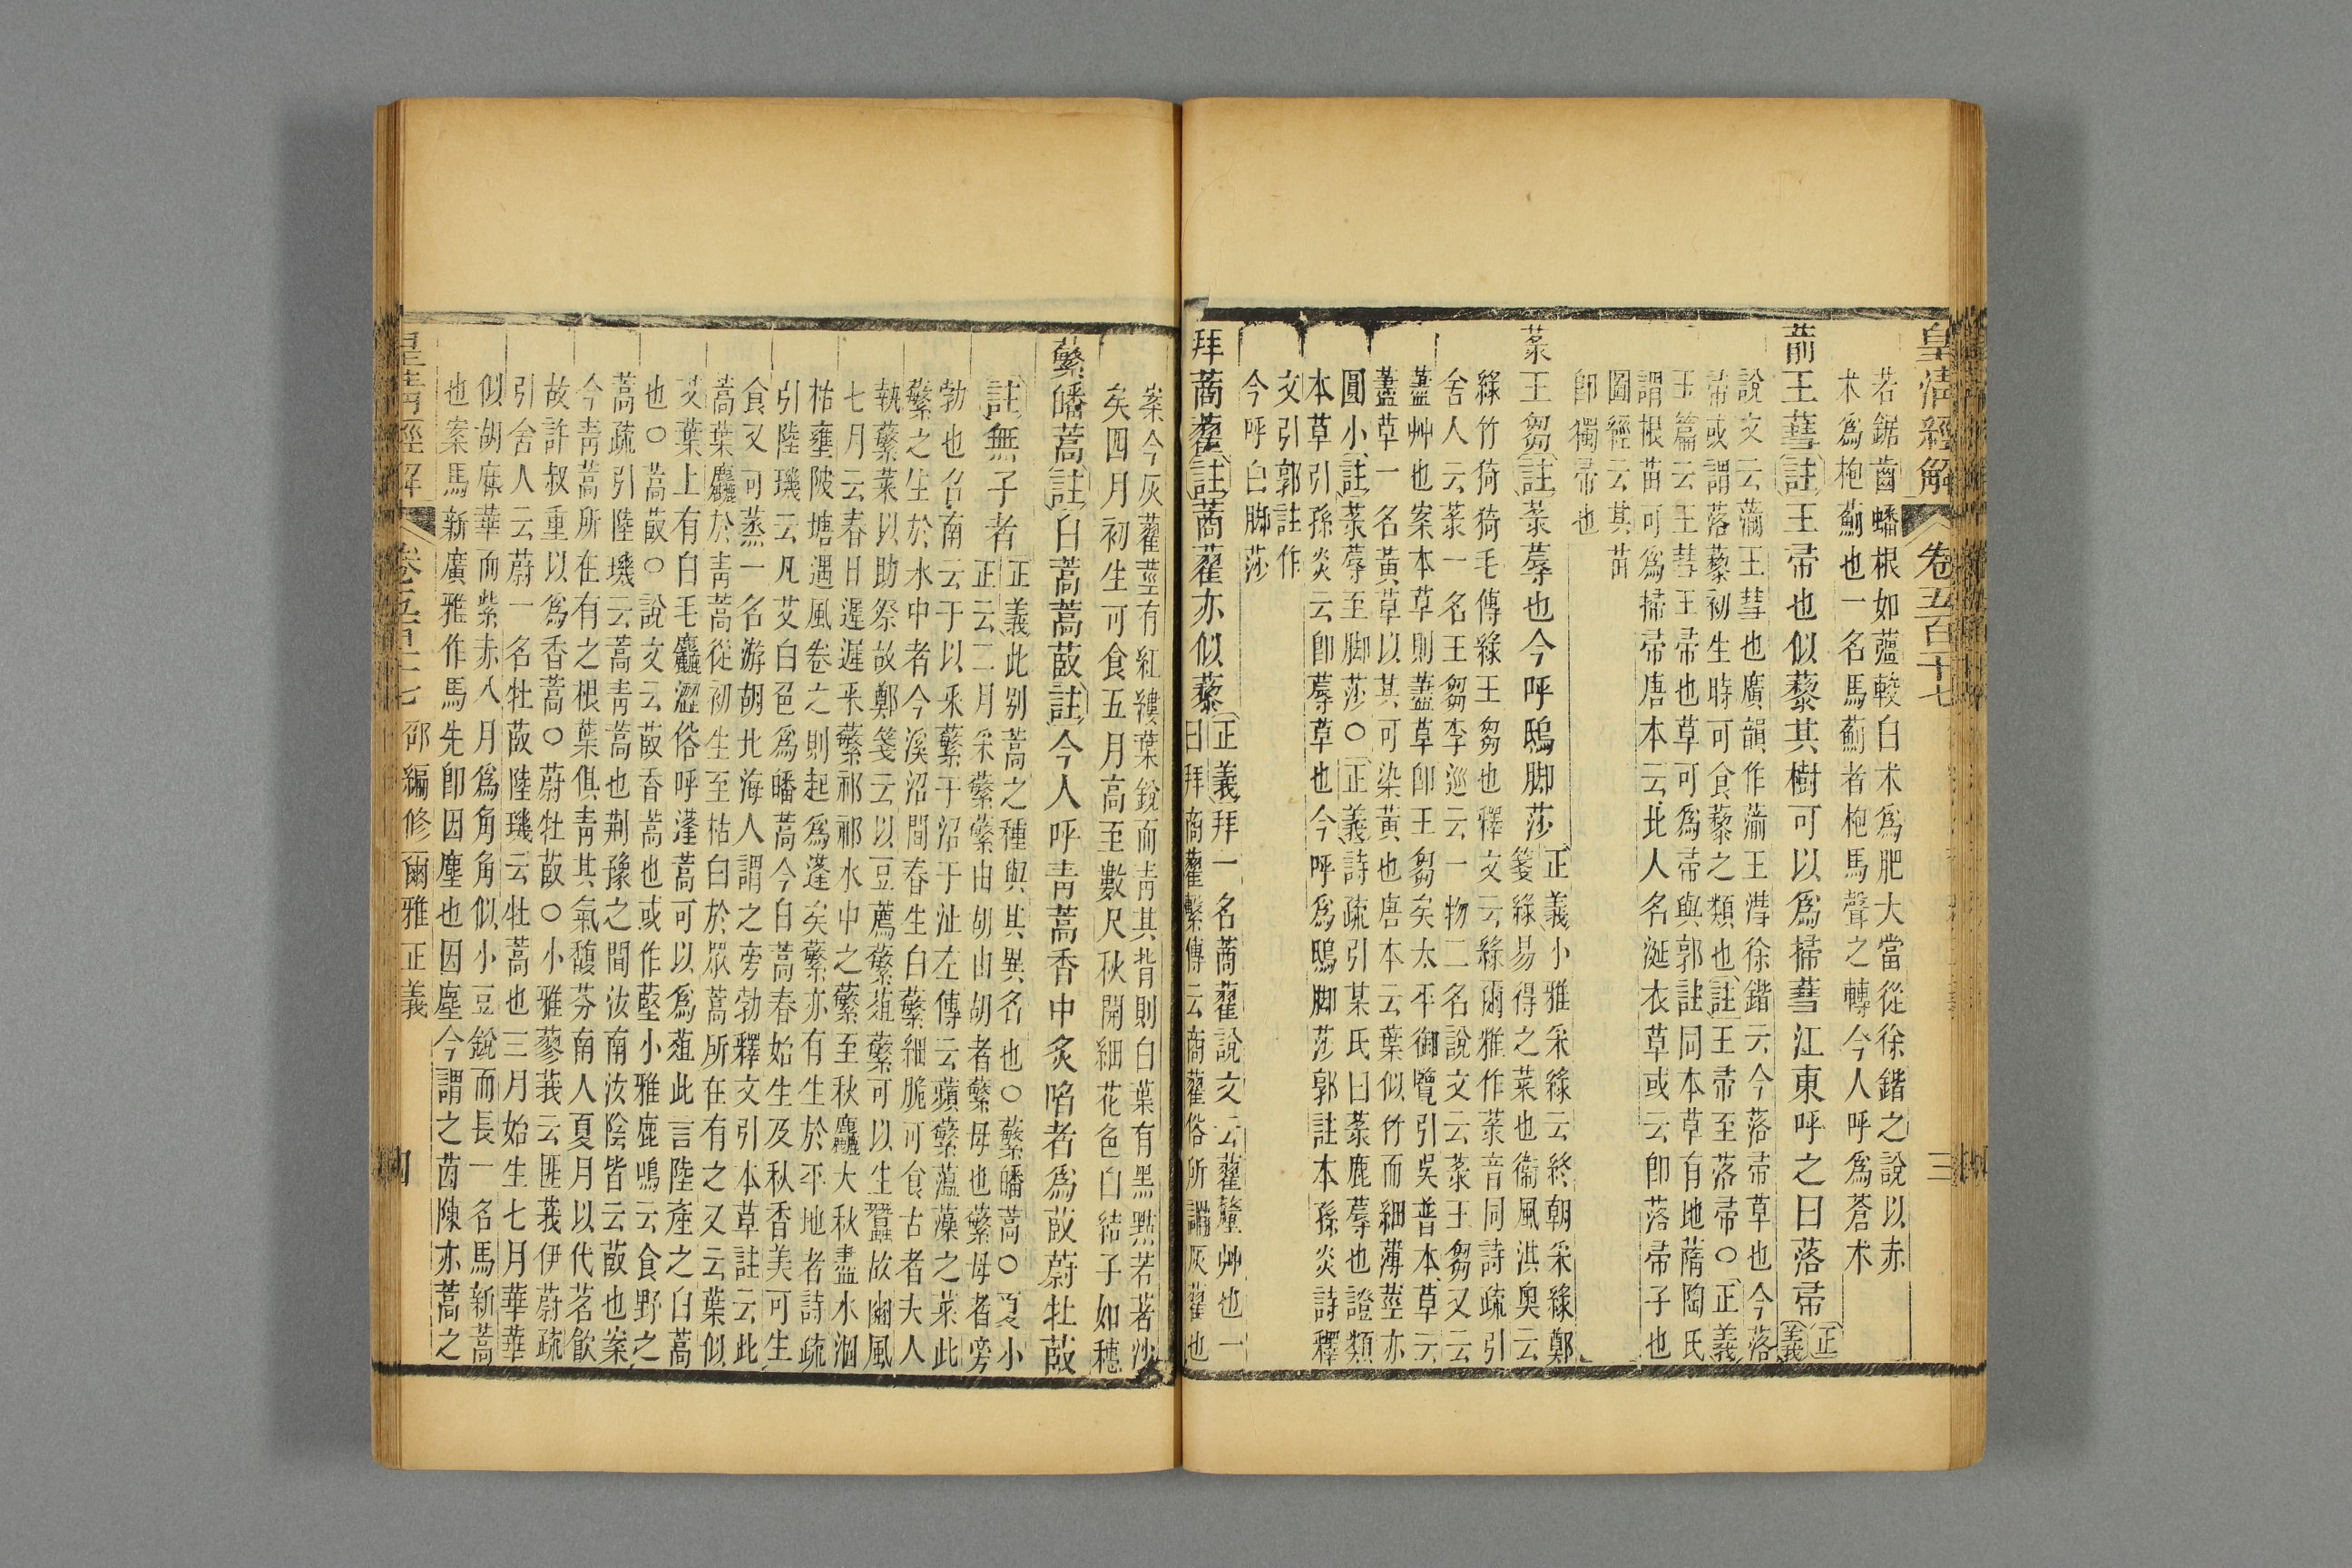 皇清經解 卷五百十七 三
若鋸齒蟠根如薀較白术爲肥大當從徐鍇之說以赤
术爲枹薊也一名馬薊者枹馬聲之轉今人呼爲蒼术
葥王蔧註王帚也似藜其樹可以爲掃蔧江東呼之曰落帚正義
說文云湔王彗也廣韻作湔王㴻徐鍇云今落帚草也今落
帚或謂落藜初生時可食藜之類也註王帚至落帚○正義
玉篇云王彗王帚也草可爲帚與郭註同本草有地膚陶氏
謂根苗可爲掃帚唐本云北人名涎衣草或云卽落帚子也
圖經云其苗
卽獨帚也
菉王芻註菉蓐也今呼鴟脚莎正義小雅采綠云終朝采綠鄭
箋綠易得之菜也衞風洪奧云
綠竹猗猗毛傳綠王芻也釋文云綠爾雅作菉音同詩疏引
舍人云菉一名王芻李巡云一物二名說文云菉王芻又云
藎艸也案本草則藎草卽王芻矣太平御覽引吳普本草云
藎草一名黃草以其可染黃也唐本云葉似竹而細薄莖亦
圓小註菉蓐至脚莎○正義詩疏引某氏曰菉鹿蓐也證類
本草引孫炎云卽蓐草也今呼爲鴟脚莎郭註本孫炎詩釋
文引郭註作
今呼白脚莎
拜蔏藋註蔏藋亦似藜正義拜一名蔏藋說文云藋釐艸也一
曰拜商藋繫傳云商藋俗所謂灰藋也
案今灰藋莖有紅縷葉銳而靑其背則白葉有黑點若著沙
矣四月初生可食五月高至數尺秋開細花色白結子如穗
蘩皤蒿註白蒿蒿菣註今人呼靑蒿香中炙啗者爲菣蔚牡菣
註無子者正義此别蒿之種與其異名也○蘩皤蒿○夏小
正云二月采蘩由胡由胡者蘩母也蘩母者旁
勃也召南云于以采蘩于沼于沚左傳云蘋蘩薀藻之菜此
蘩之生於水中者今溪沼間春生白蘩細脆可食古者夫人
執蘩菜以助祭故鄭箋云以豆薦蘩葅蘩可以生蠶故豳風
七月云春日遲遲采蘩祁祁水中之蘩至秋麤大秋盡水涸
枯壅陂塘遇風卷之則起爲蓬矣蘩亦有生於平地者詩疏
引陸璣云凡艾白色爲皤蒿今白蒿春始生及秋香美可生
食又可蒸一名游胡北海人謂之旁勃釋文引本草註云此
蒿葉麤於靑蒿從初生至枯白於眾蒿所在有之又云葉似
艾葉上有白毛麤澀俗呼蓬蒿可以爲葅此言陸產之白蒿
也○蒿菣○說文云菣香蒿也或作藖小雅鹿鳴云食野之
蒿疏引陸璣云蒿靑蒿也荆豫之間汝南汝陰皆云菣也案
今靑蒿所在有之根葉俱靑其氣馥芬南人夏月以代茗飮
故許叔重以爲香蒿○蔚牡菣○小雅蓼莪云匪莪伊蔚疏
引舍人云蔚一名牡菣陸璣云牡蒿也三月始生七月華華
似胡麻華而紫赤八月爲角角似小豆銳而長一名馬新蒿
也案馬新廣雅作馬先卽因塵也因塵今謂之茵陳亦蒿之
皇清經解 卷五百十七 邵編修爾雅正義 四